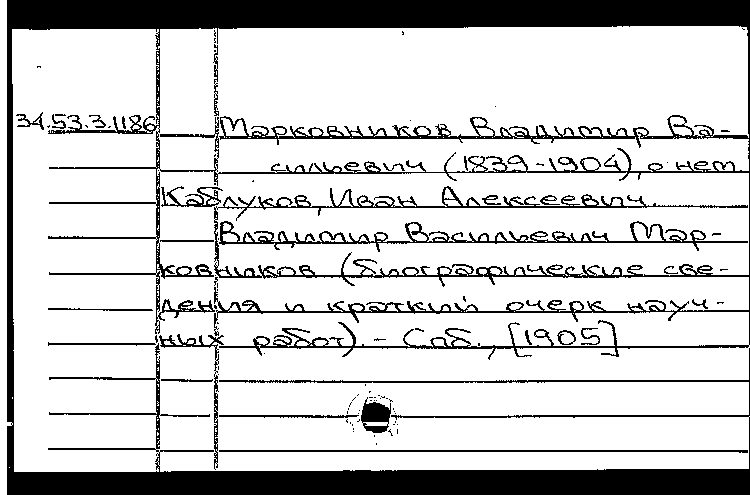 34.53.3.1186 Марковников, Владимир Ва-
сильевич (1839-1904), о нем.
Каблуков, Иван Алексеевич.
Владимир Васильевич Мар-
ковников (биографические све-
дения и краткий очерк науч-
ных работ). - Спб., [1905]